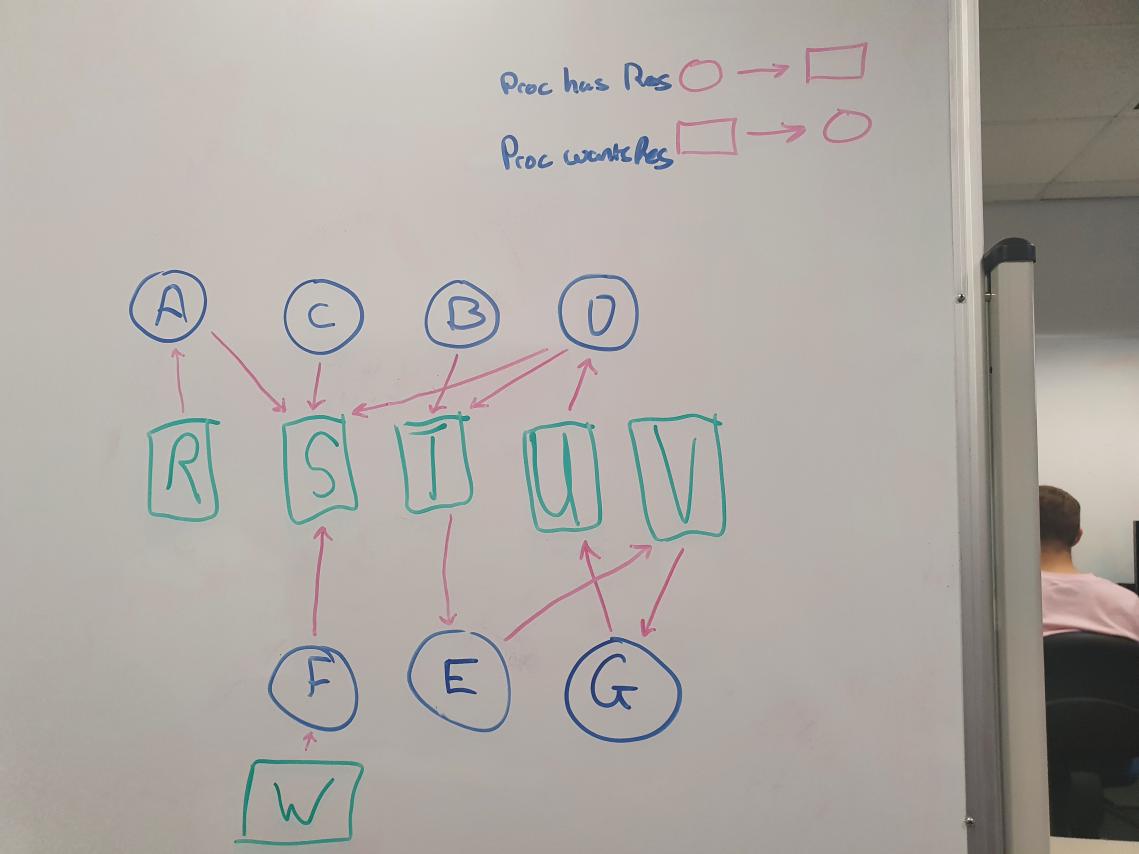 Proc has Res
Proc wants Res
A C B D
R S T U V
F E G
W